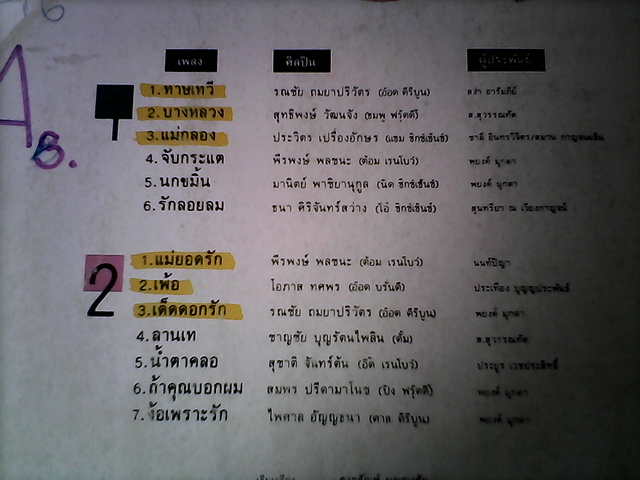 6
A
B.
เพลง ศิลปิน ผู้ประพันธ์
1
1.ทาษเทวี รณชัย ถมยาปริวัตร (อ๊อด คีรีบูน) สง่า อารัมภีย์
2.บางหลวง สุทธิพงษ์ วัฒนจัง (ชมพู ฟรุ๊ตตี้) ส.สุวรรณทัต
3.แม่กลอง ประวิตร เปรื่องอักษร (แซม ซิกซ์เซ้นซ์) ชาลี อินทรวิจิตร/สมาน กาญจนผลิน
4.จับกระแต พีรพงษ์ พลชนะ (ต้อม เรนโบว์) พยงค์ มุกดา
5.นกขมิ้น มานิตย์ พาชิยานุกูล (นิต ซิกซ์เซ้นซ์) พยงค์ มุกดา
6.รักลอยลม ธนา ศิริจันทร์สว่าง (โอ๋ ซิกซ์เซ้นซ์) สุนทรียา ณ เวียงกาญจน์
2
1.แม่ยอดรัก พีรพงษ์ พลชนะ (ต้อม เรนโบว์)
2.เพ้อ โอภาส ทศพร (อ๊อด บรั่นดี) ประเทือง บุญญประพันธ์
3.เด็ดดอกรัก รณชัย ถมยาปริวัตร (อ๊อด คีรีบูน) พยงค์ มุกดา
4.ลานเท ชาญชัย บุญรัตนไพลิน (ตั้ม) ส.สุวรรณทัต
5.น้ำตาคลอ สุชาติ จันทร์ต้น (อี๊ด เรนโบว์) ประยูร เวชประสิทธิ์
6.ถ้าคุณบอกผม สมพร ปรีดามาโนช (ปิง ฟรุ๊ตตี้) พยงค์ มุกดา
7.ง้อเพราะรัก ไพศาล อัญญธนา (ศาล คีรีบูน) พยงค์ มุกดา